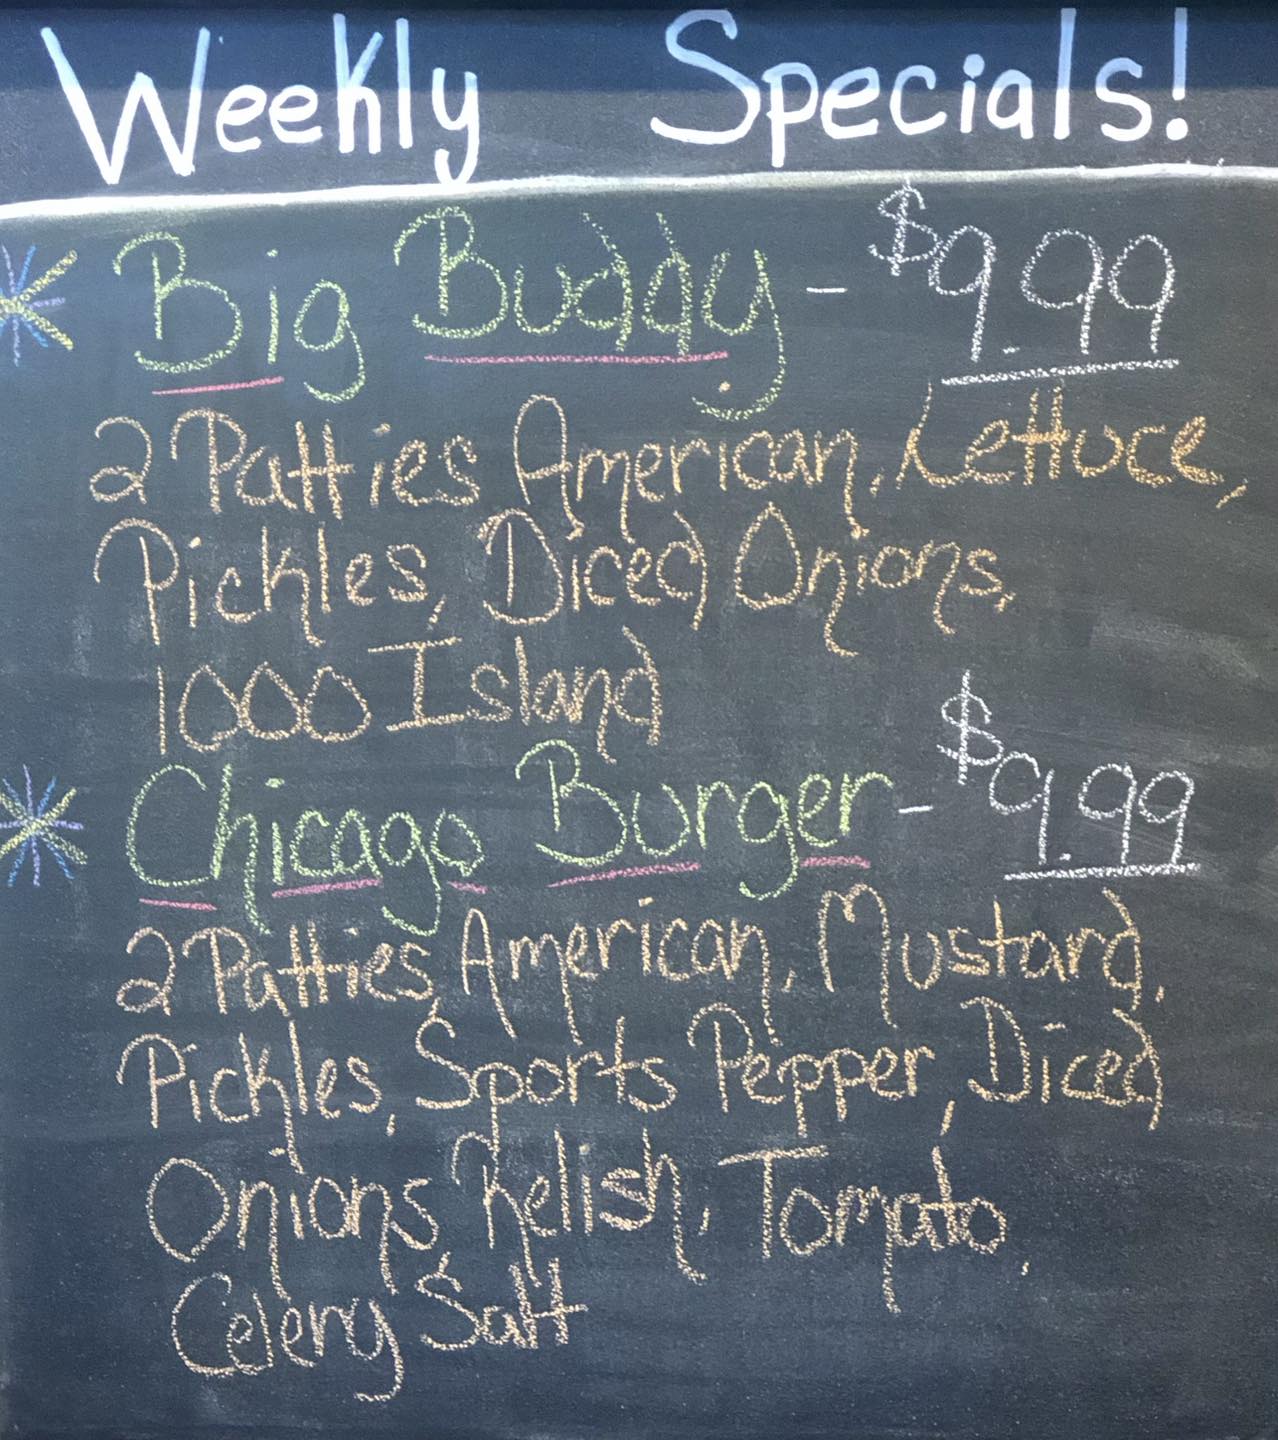 Weekly Specials!
Big Buddy - $9.99
2 Patties American, Lettuce,
Pickles, Diced Onions,
1000 Island
Chicago Burger - $9.99
2 Patties, American, Mustard,
Pickles, Sports Pepper, Diced
Onions, Relish, Tomato,
Celery Salt